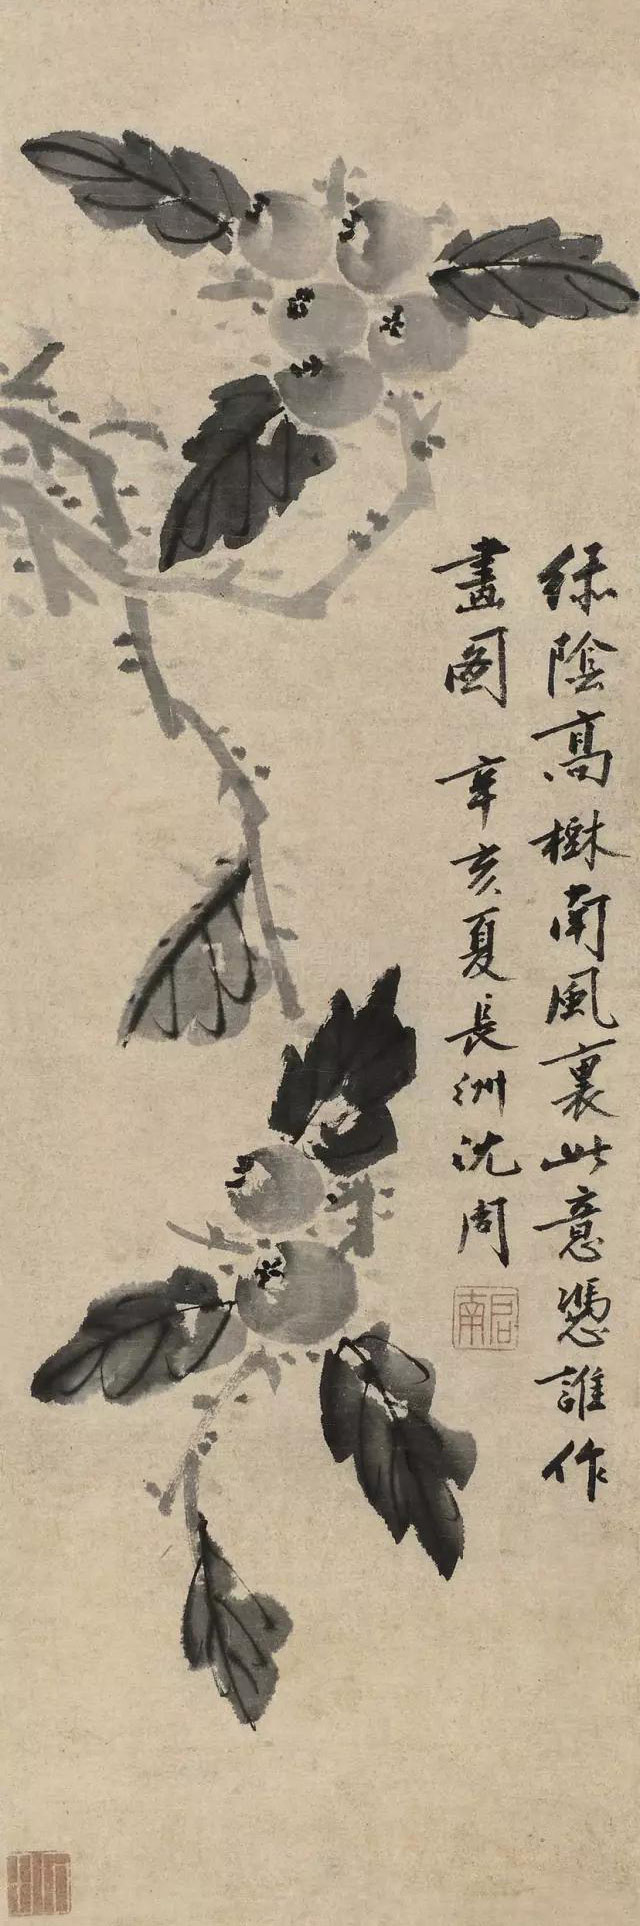 绿陰髙樹南風裏此意憑誰作
畫圖 辛亥夏長洲沈周
啟南